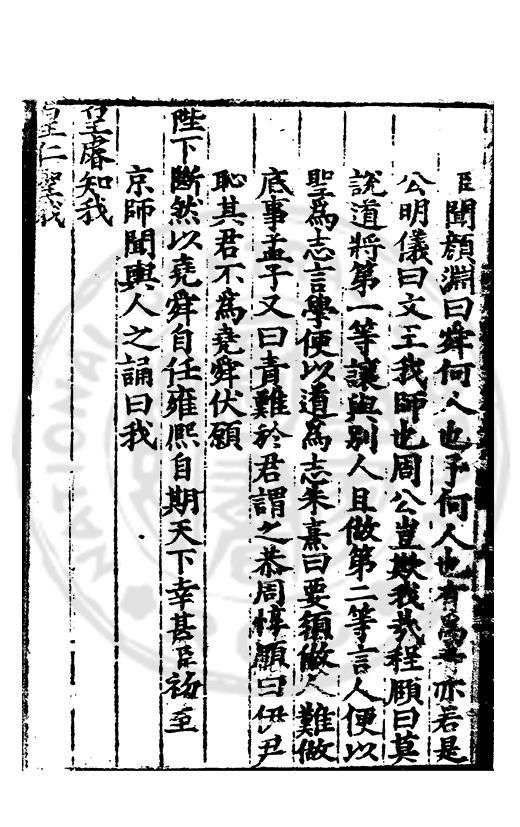 臣聞顏淵曰舜何人也予何人也有爲者亦若是
公明儀曰文王我師也周公豈欺我哉程頤曰莫
說道將第一等讓與別人且做第二等言人便以
聖爲志言學便以道爲志朱熹曰要須做人難做
底事孟子又曰責難於君謂之恭周惇頤曰伊尹
恥其君不爲堯舜伏願
陛下斷然以堯舜自任雍熙自期天下幸甚臣初至
京師聞輿人之誦曰我
皇睿知我
皇仁聖我